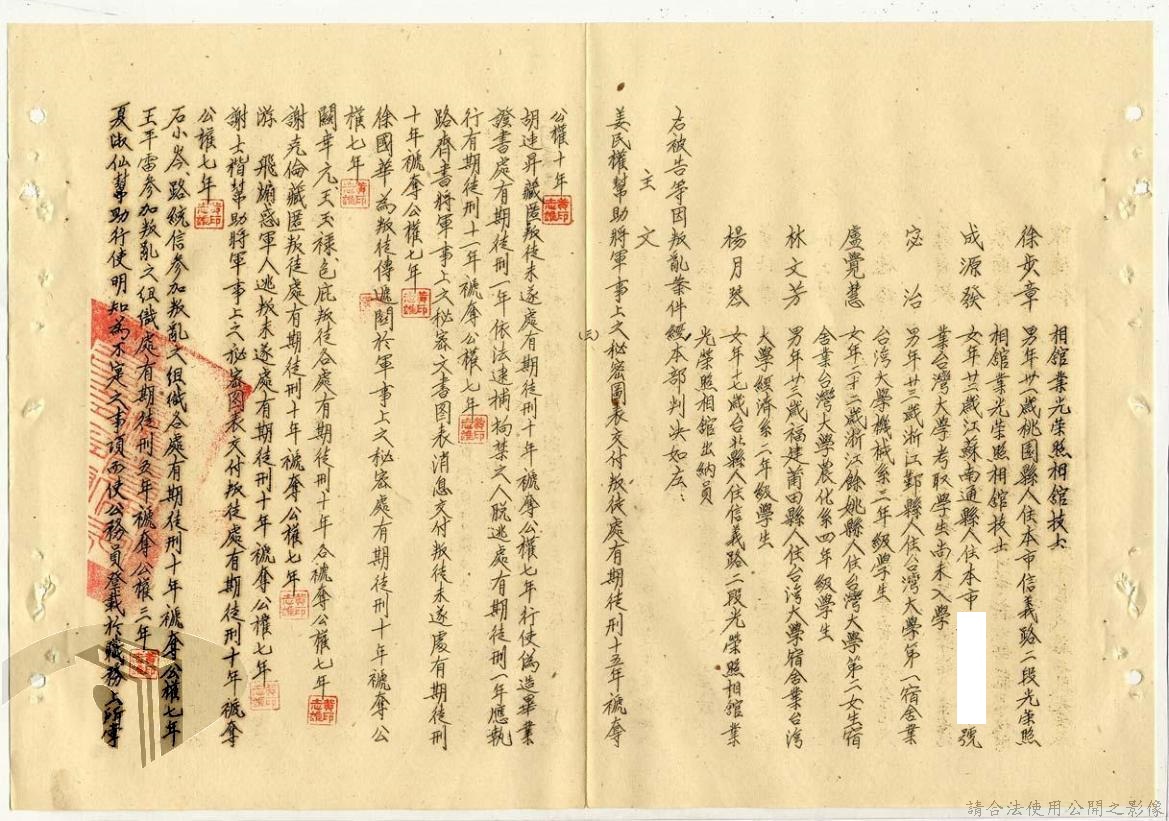 相舘業光榮照相舘技士
徐步章 男年廿八歲桃園縣人住本市信義路二段光榮照
相舘業光榮照相舘技士
成源發 女年廿三歲江蘇南通縣人住本市 號
業台灣大學考取學生尚未入學
宓治 男年廿三歲浙江鄞縣人住台灣大學第一宿舍業
台湾大學機械系二年級學生
盧覺慧 女年二十二歲浙江餘姚縣人住台灣大學第二女生宿
舍業台灣大學農化系四年級學生
林文芳 男年廿三歲福建莆田縣人住台湾大學宿舍業台湾
大學經濟系二年級學生
楊月琴 女年十七歲台北縣人住信義路二段光榮照相舘業
光榮照相舘出納員
右被告等因叛亂案件經本部判決如左：
主文
姜民權幫助將軍事上之秘密圖表交付叛徒處有期徒刑十五年褫奪
(三)
公權十年
胡連昇藏匿叛徒未遂處有期徒刑十年褫奪公權七年行使偽造畢業
證書處有期徒刑一年依法逮捕拘禁之人脫逃處有期徒刑一年應執
行有期徒刑十一年褫奪公權七年
路齊書將軍事上之秘密文書图表消息交付叛徒未遂處有期徒刑
十年褫奪公權七年
徐國華為叛徒傳遞關於軍事上之秘密處有期徒刑十年褫奪公
權七年
關韋元王玉禄包庇叛徒各處有期徒刑十年各褫奪公權七年
謝克倫藏匿叛徒處有期徒刑十年褫奪公權七年
游飛煽惑軍人逃叛未遂處有期徒刑十年褫奪公權七年
謝士楷幫助將軍事上之秘密图表交付叛徒處有期徒刑十年褫奪
公權七年
石小岑、路統信參加叛亂之組織各處有期徒刑十年褫奪公權七年
王平雷參加叛亂之組織處有期徒刑五年褫奪公權三年
夏淑仙幫助行使明知為不實之事項而使公務員登載於職務上所掌
請合法使用公開之影像